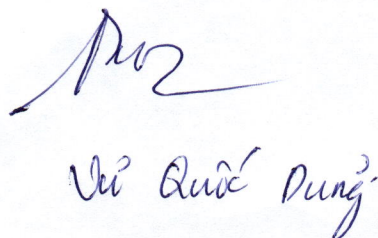 Vũ Quốc Dũng